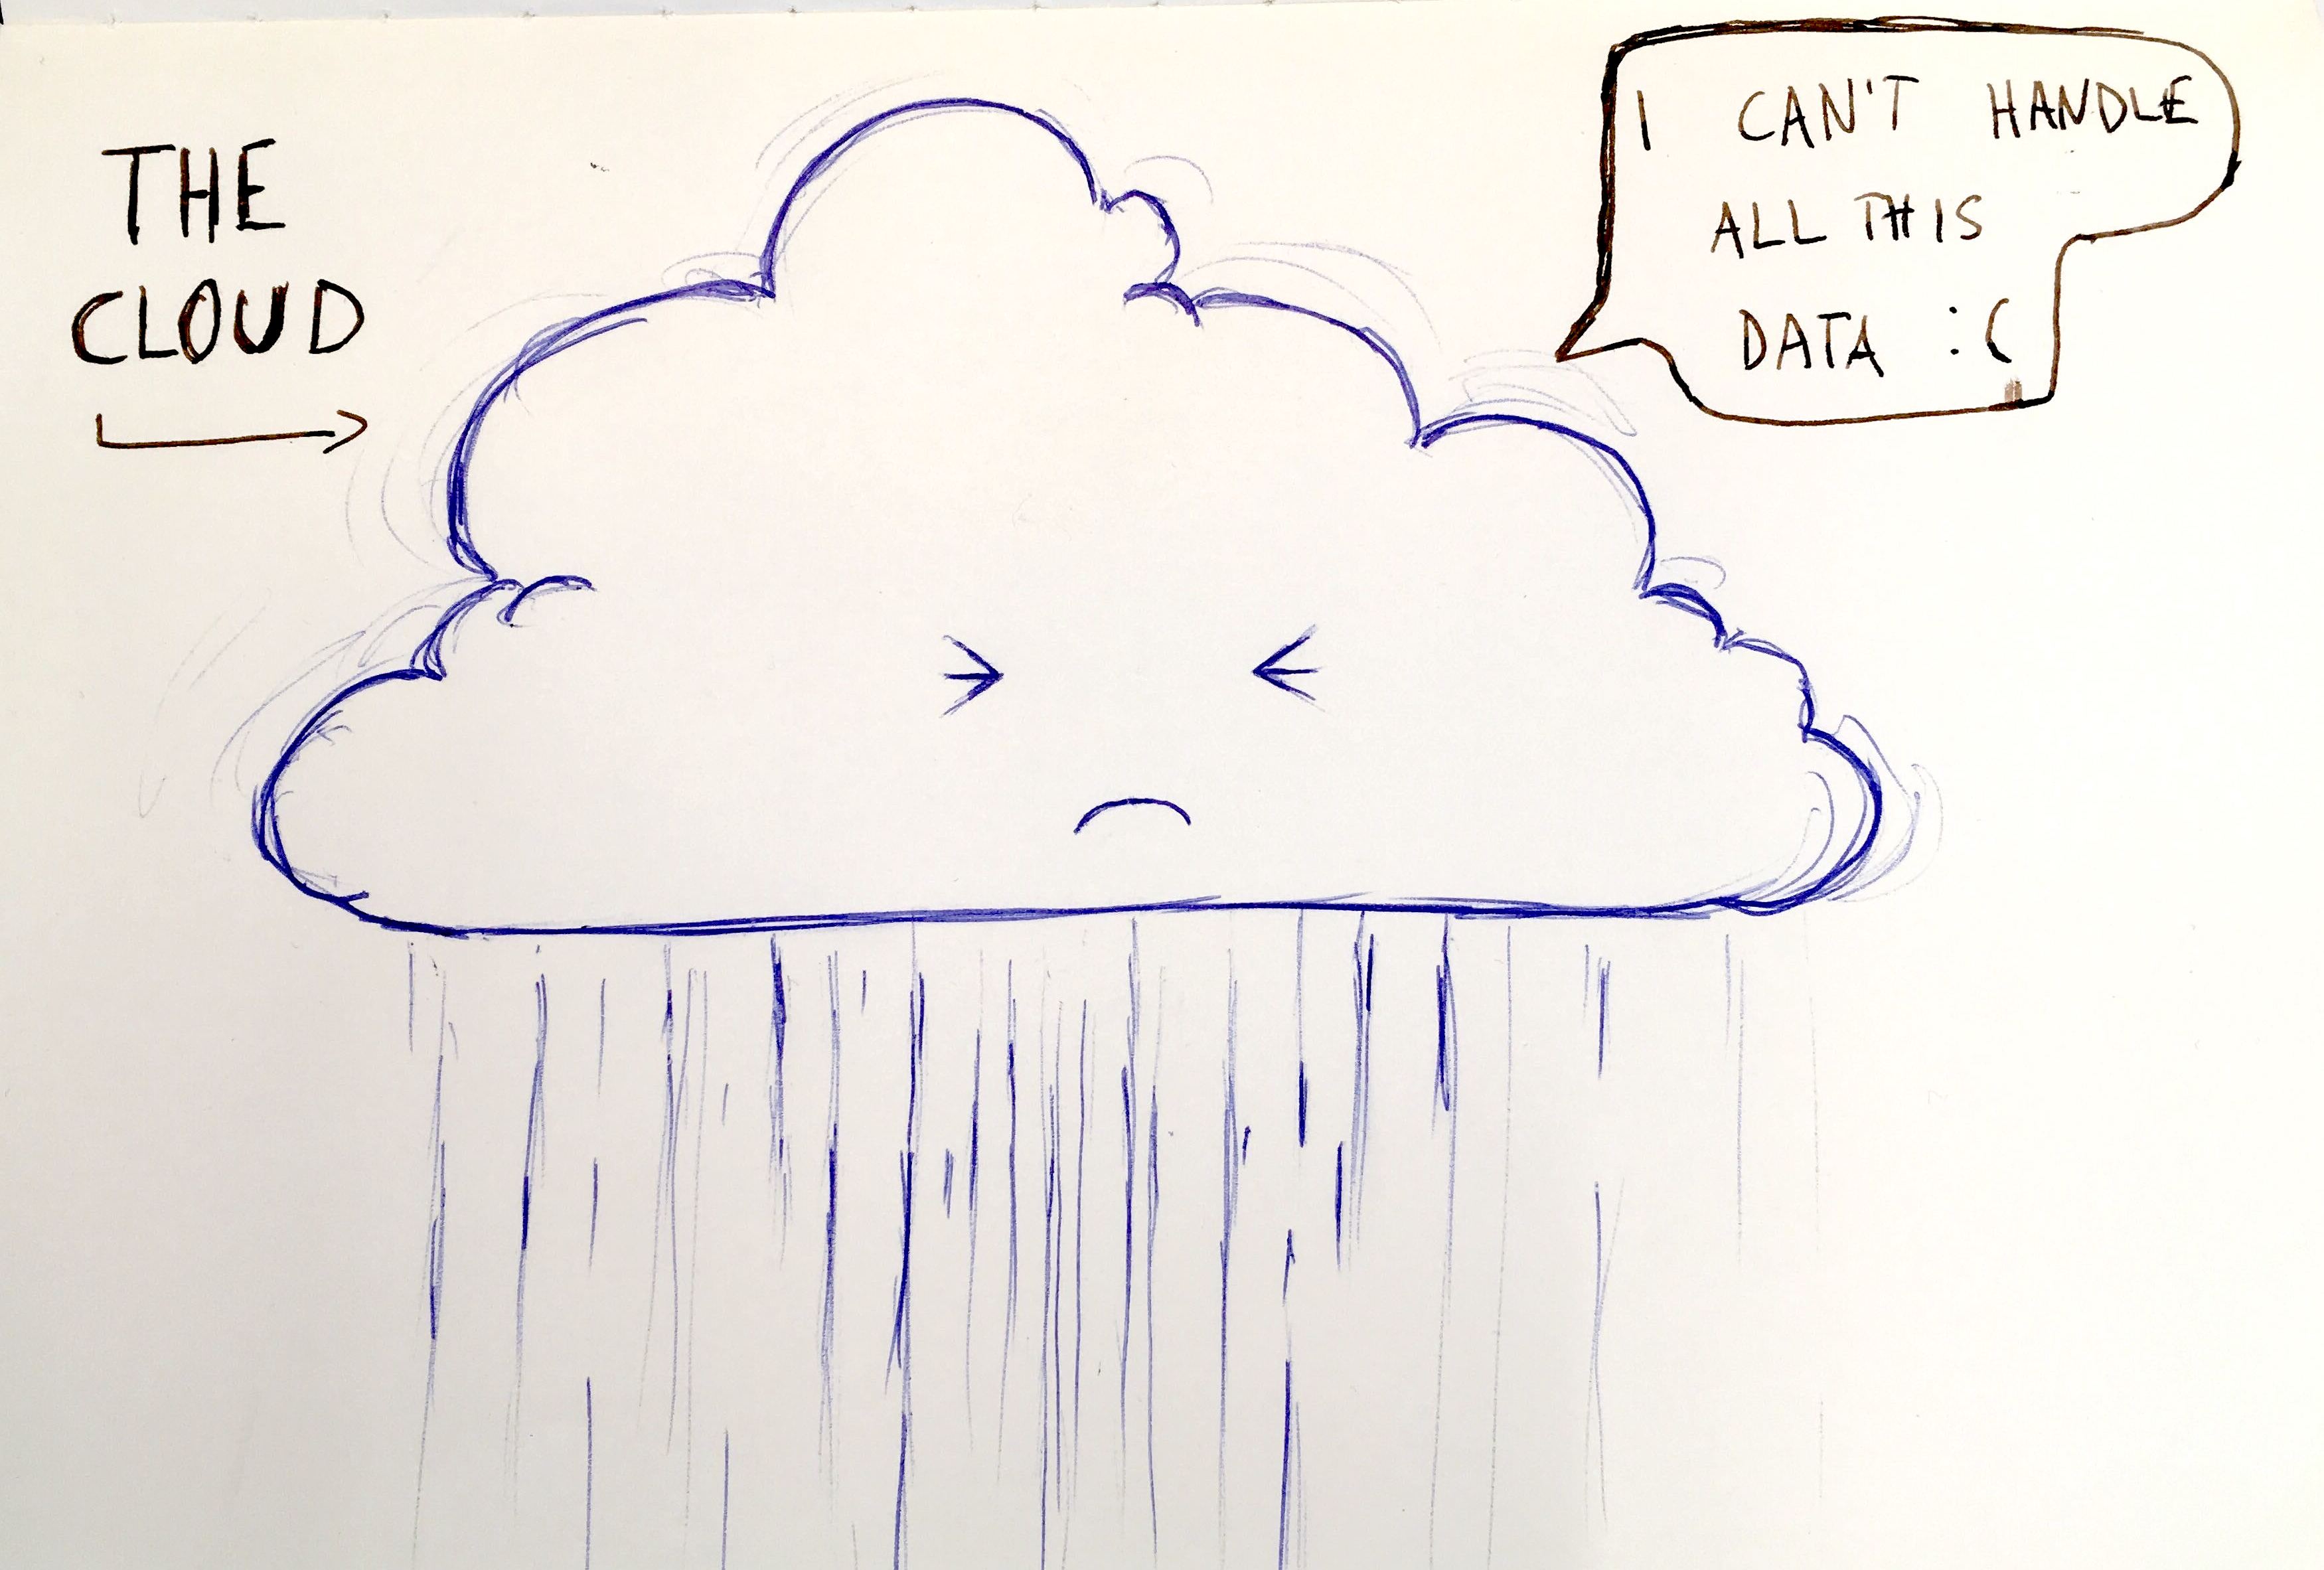 THE
CLOUD
I CAN'T HANDLE
ALL THIS
DATA :(